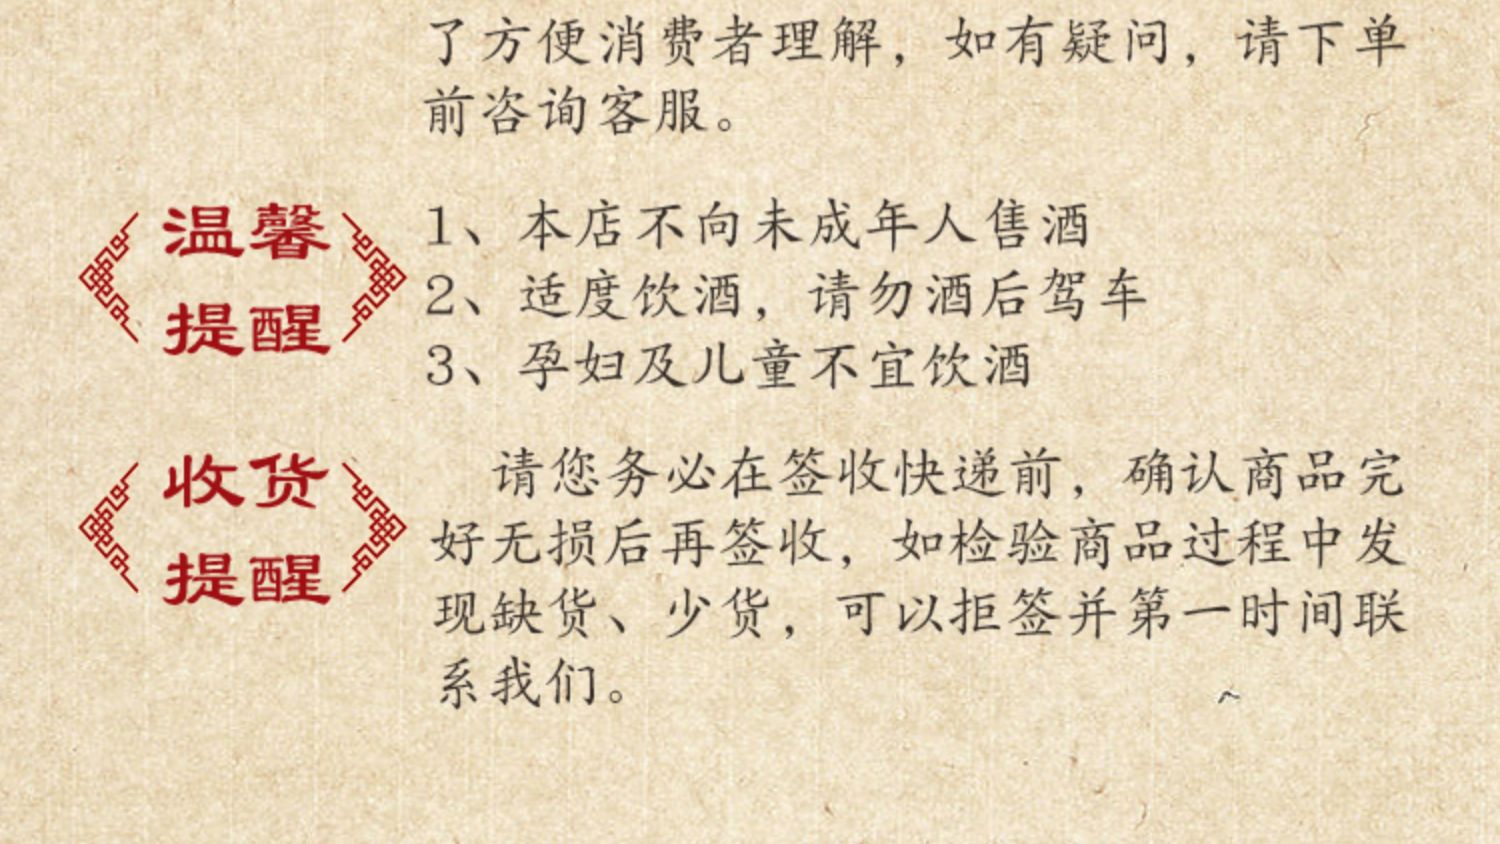 了方便消费者理解，如有疑问，请下单
前咨询客服。
温馨
提醒
1、本店不向未成年人售酒
2、适度饮酒，请勿酒后驾车
3、孕妇及儿童不宜饮酒
收货
提醒
请您务必在签收快递前，确认商品完
好无损后再签收，如检验商品过程中发
现缺货、少货，可以拒签并第一时间联
系我们。